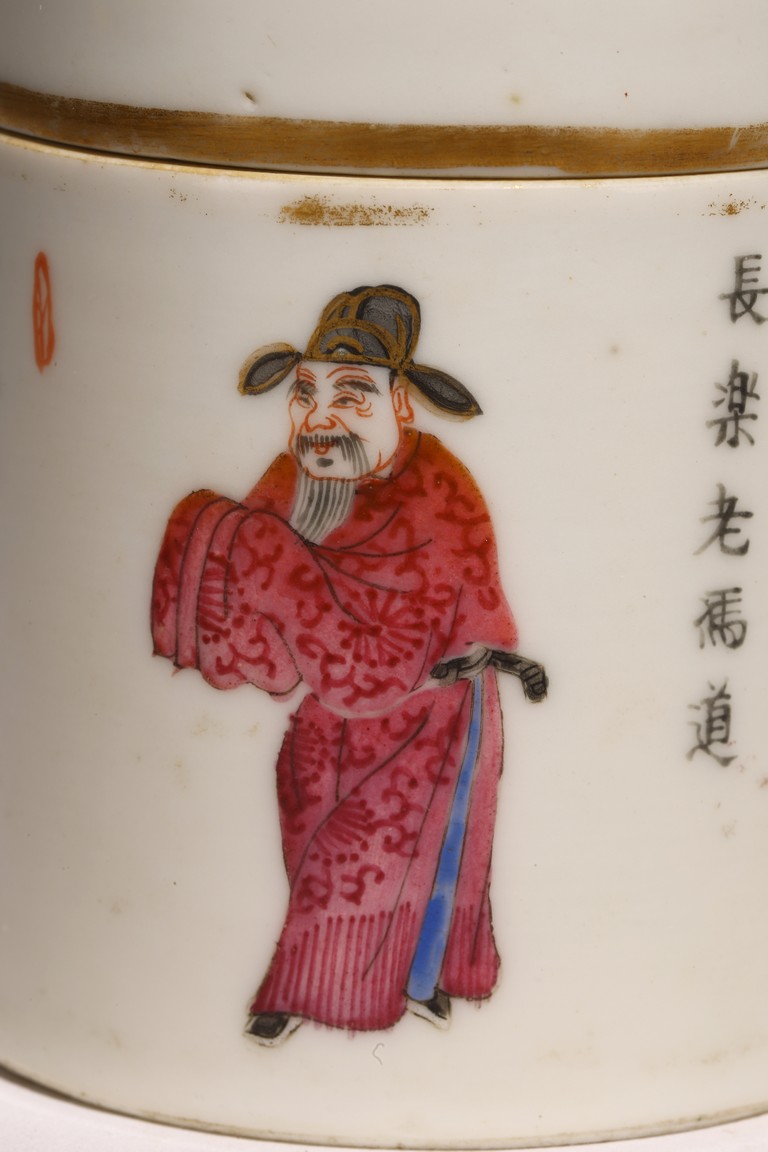 長楽老馮道